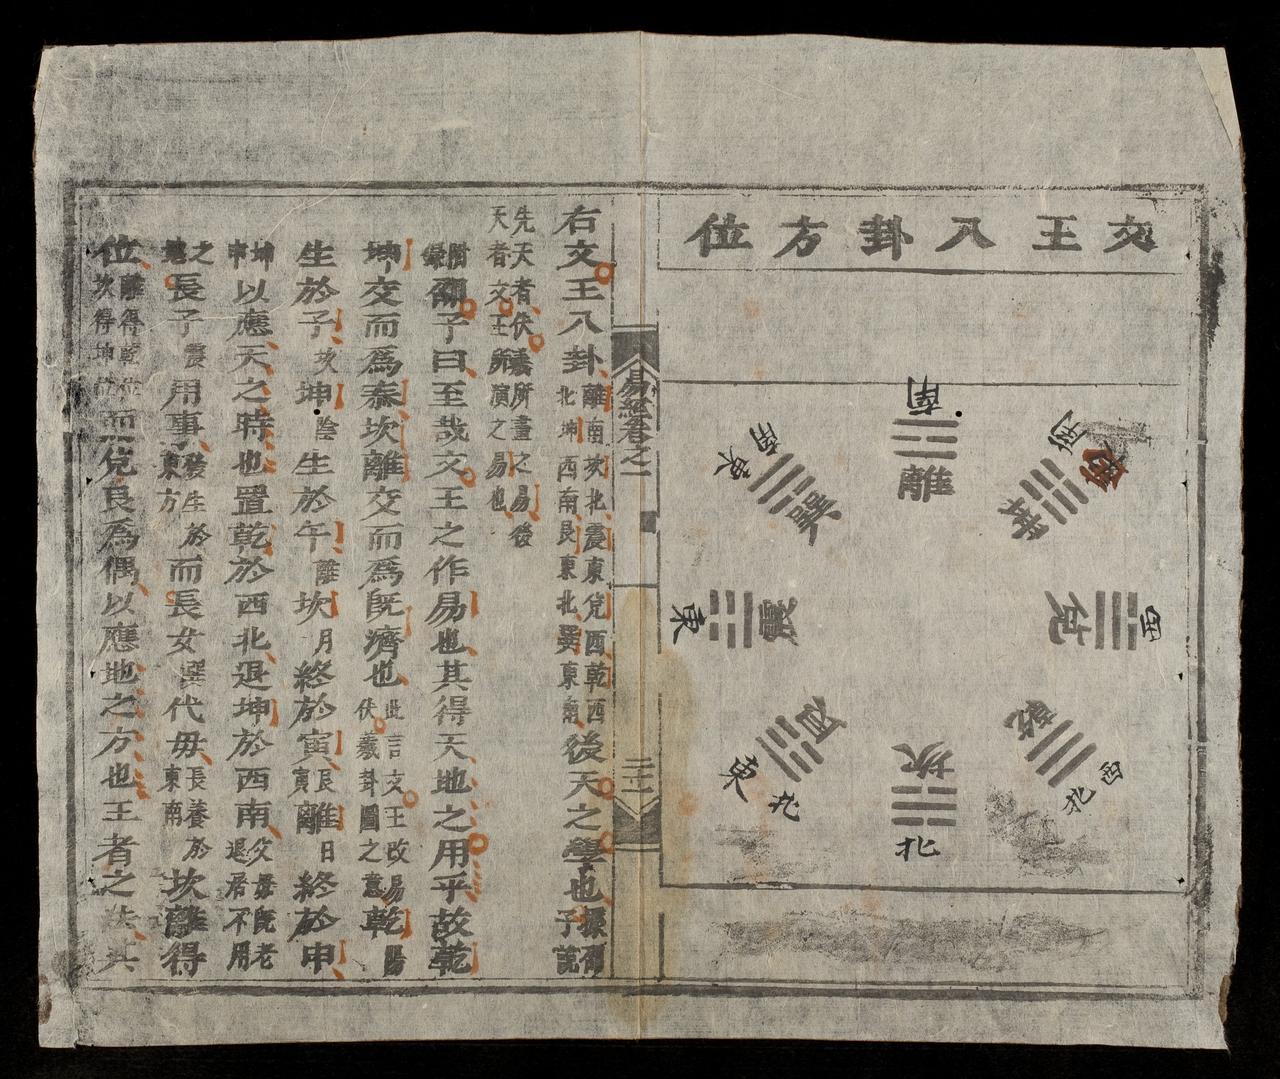 文王八卦方位
南
離
西南
坤
西
兌
西北
乾
北
坎
東北
艮
東
震
東南
巽
易經卷之一
二十二
右文王八卦離南坎北震東兌西乾西北坤西南艮東北巽東南後天之學也據邵子說
先天者伏羲所畫之易後天者文王所演之易也
附錄邵子曰至哉文王之作易也其得天地之用乎故乾
坤交而為泰坎離交而為旣濟也此言文王改易伏羲卦圖之意乾陽
生於子坎坤陰生於午離坎月終於寅艮寅離日終於申
坤申以應天之時也置乾於西北退坤於西南父母旣老退居不用
之地長子震用事發生於東方而長女巽代母長養於東南坎離得
位離得乾位坎得坤位而兌艮為偶以應地之方也王者之法其